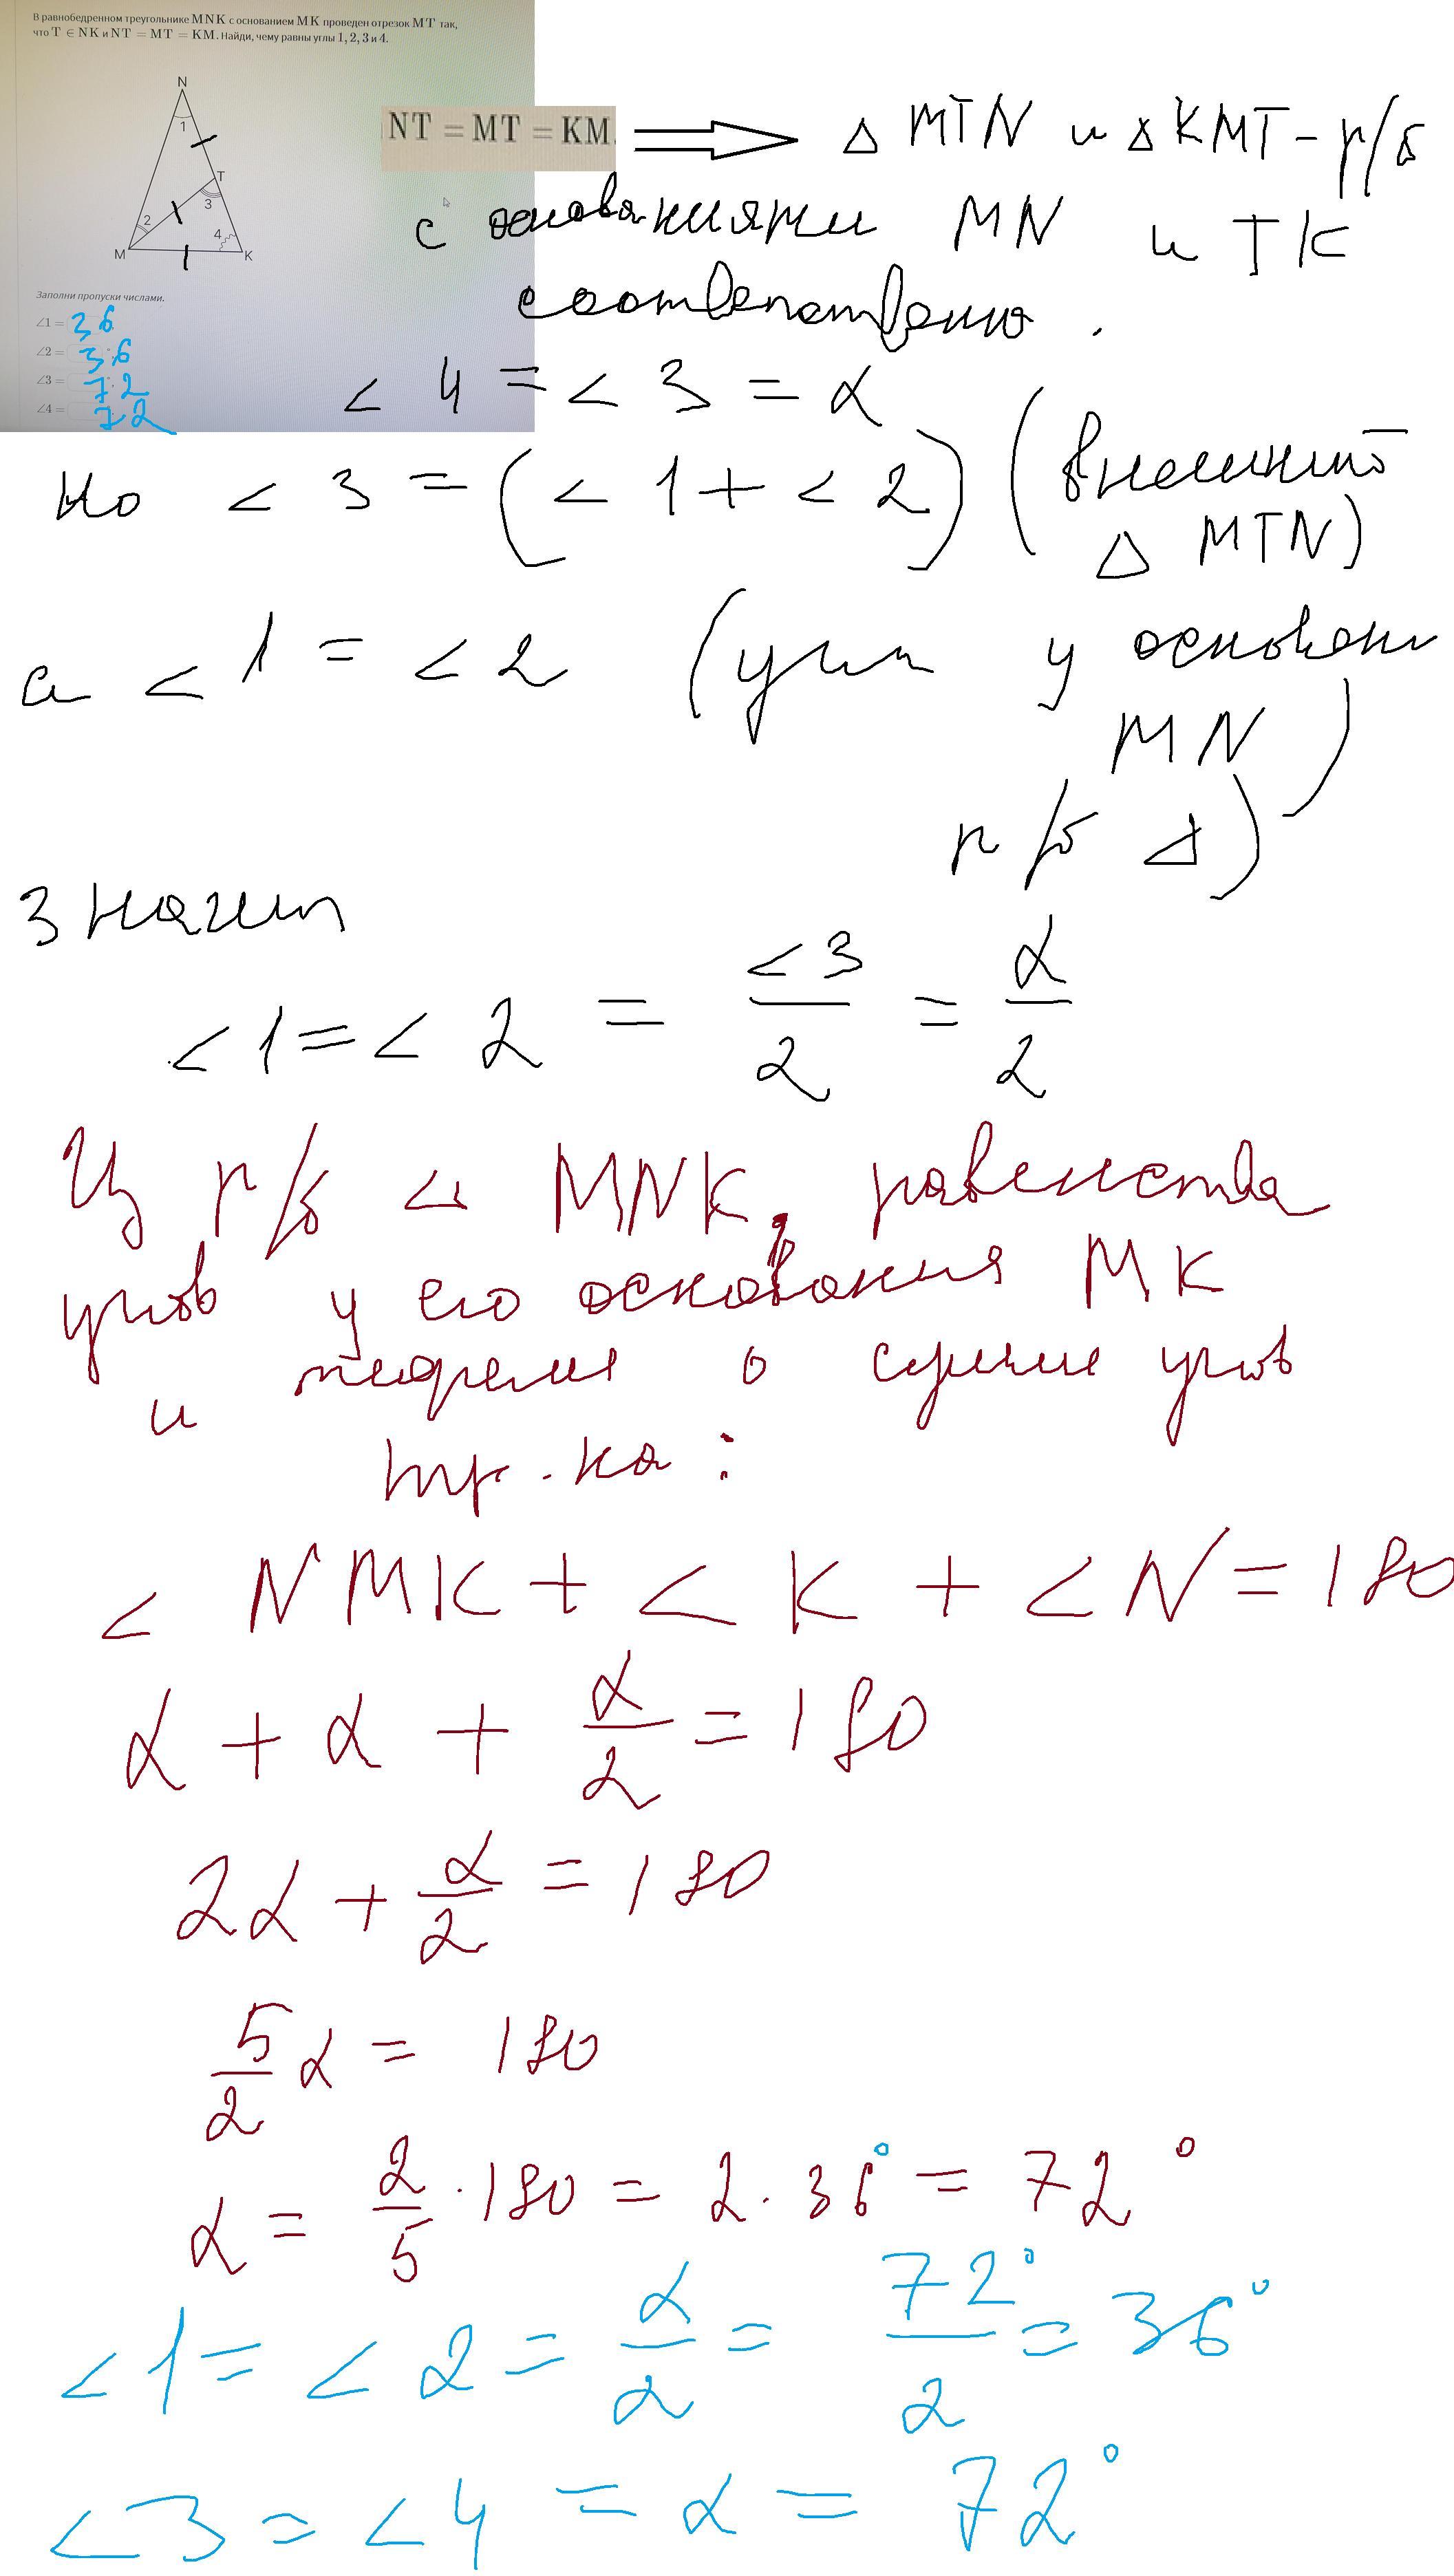 В равнобедренном треугольнике MNK с основанием MK проведен отрезок MT так,
что T ∈ NK и NT = MT = KM. Найди, чему равны углы 1, 2, 3 и 4.
N
1
T
2
3
4
M
K
Заполни пропуски числами.
∠1 = 36°.
∠2 = 36°.
∠3 = 72°.
∠4 = 72°.
NT = MT = KM. ⟹ Δ MTN и Δ KMT - р/б
с основаниями MN и TK
соответственно.
∠4 = ∠3 = α
Но ∠3 = (∠1 + ∠2) (внешний
Δ MTN)
а ∠1 = ∠2 (углы у основан
MN)
р/б Δ)
Значит
∠1 = ∠2 = ∠3/2 = α/2
Из р/б Δ MNK, равенства
углов у его основания MK
и теорема о сумме углов
тр-ка:
∠NMK + ∠K + ∠N = 180
α + α + α/2 = 180
2α + α/2 = 180
5/2 α = 180
α = 2/5 · 180 = 2 · 36° = 72°
∠1 = ∠2 = α/2 = 72°/2 = 36°
∠3 = ∠4 = α = 72°